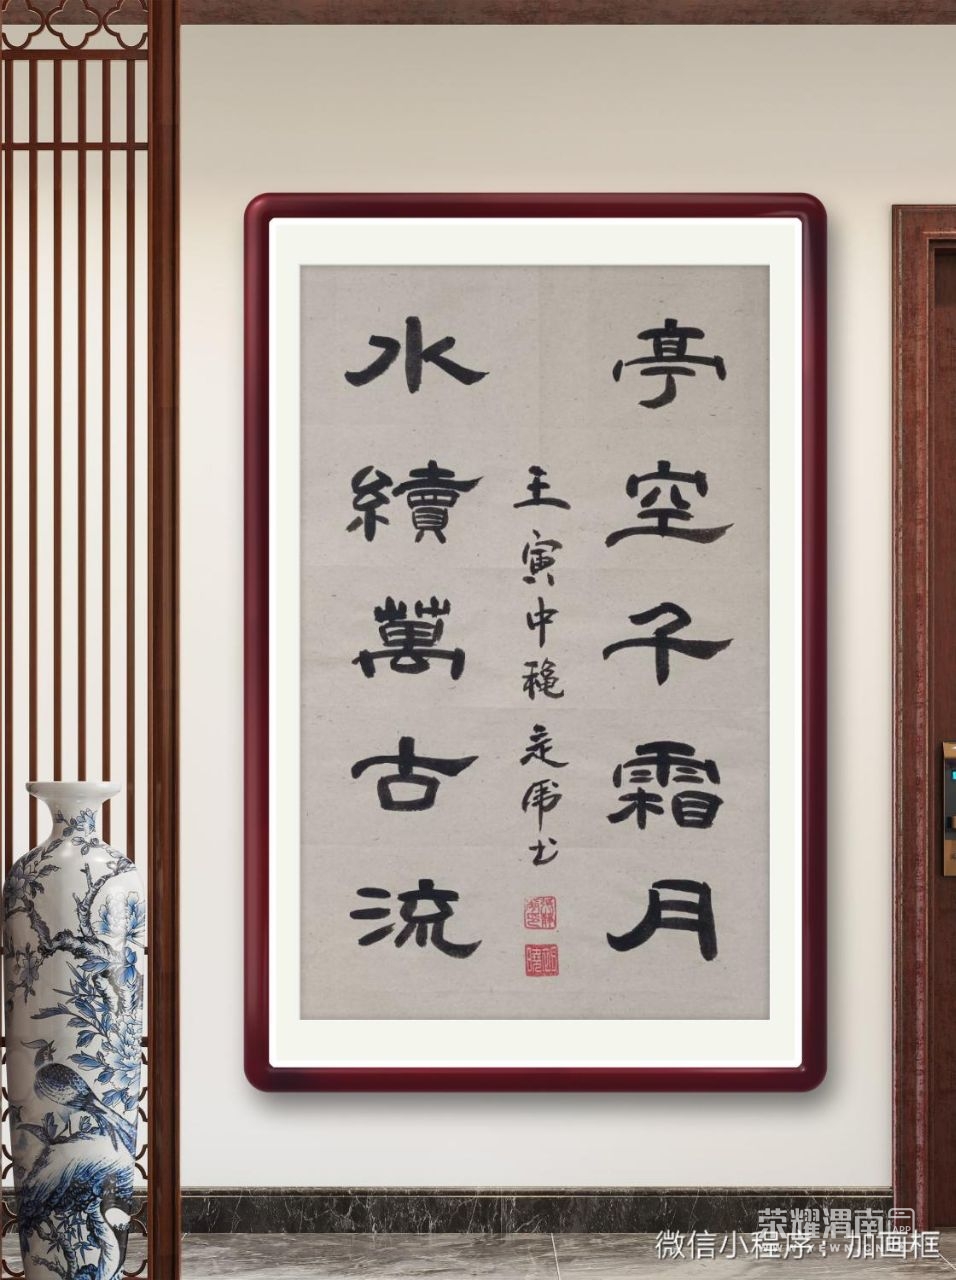 亭空千霜月
水續萬古流
王寅中穐定虎书
荣耀渭南 APP
微信小程序：加画框